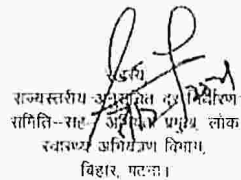 सदस्य,
राज्यस्तरीय अनुसूचित दर निर्धारण
समिति-सह- अभियंता प्रमुख, लोक
स्वास्थ्य अभियंत्रण विभाग,
बिहार, पटना।